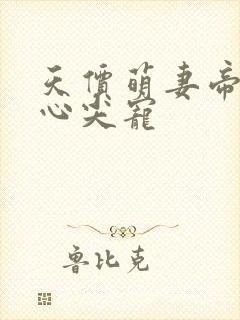 天價萌妻帝
心尖寵
魯比克